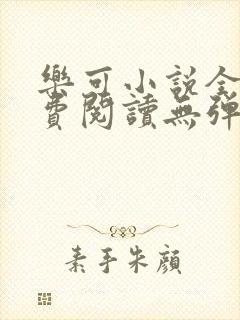 樂可小說全
費閱讀無彈
素手朱顔